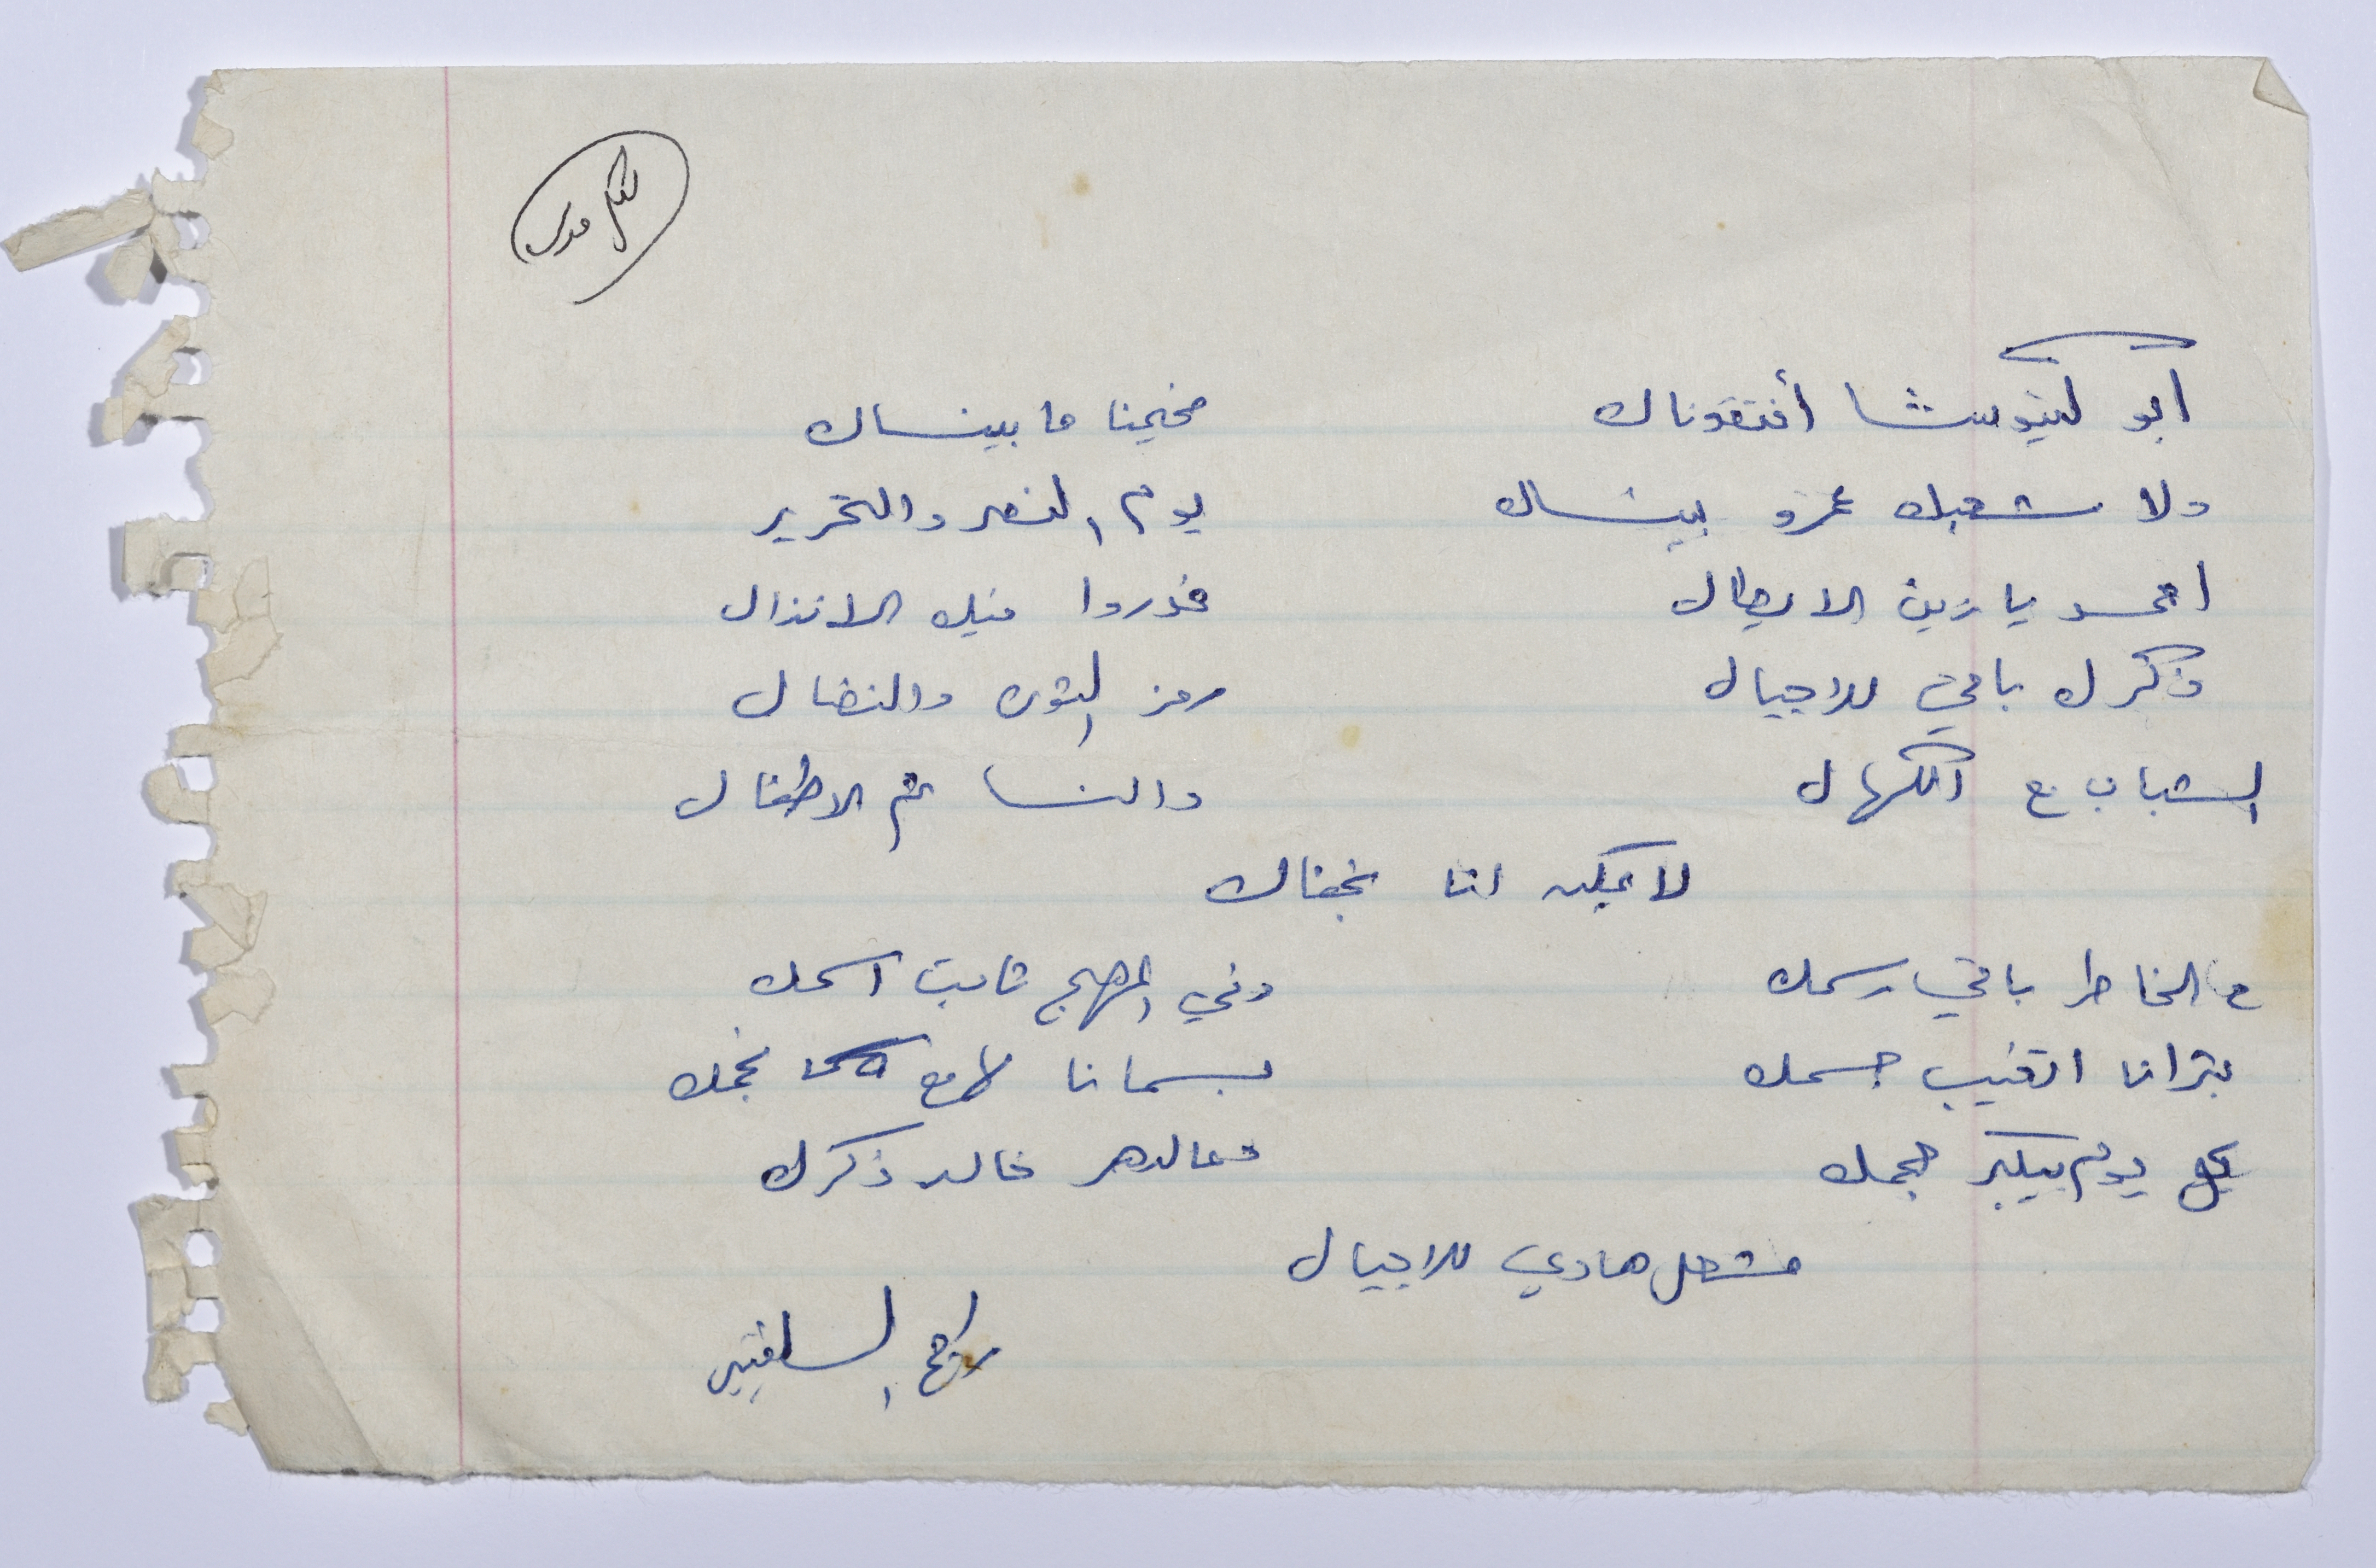 ابو كيتوسشا أفتقدناك مخيمنا ما بينساك
ولا شعبك عمرو بينساك يوم النصر والتحرير
احمد يا زين الابطال غدروا فيك الانذال
ذكرك باقي للاجيال رمز الثوره والنضال
الشباب مع الكهال والنسا ثم الاطفال
لا يمكن انا نجفاك
ع الخاطر باقي رسمك وفي المهج ثابت اسمك
بترانا اتغيب جسمك بسمانا لامع نجمك
كل يوم بيكبر حجمك وعالدهر خالد ذكرك
مشعل هادي للاجيال
راجح السلفيتي